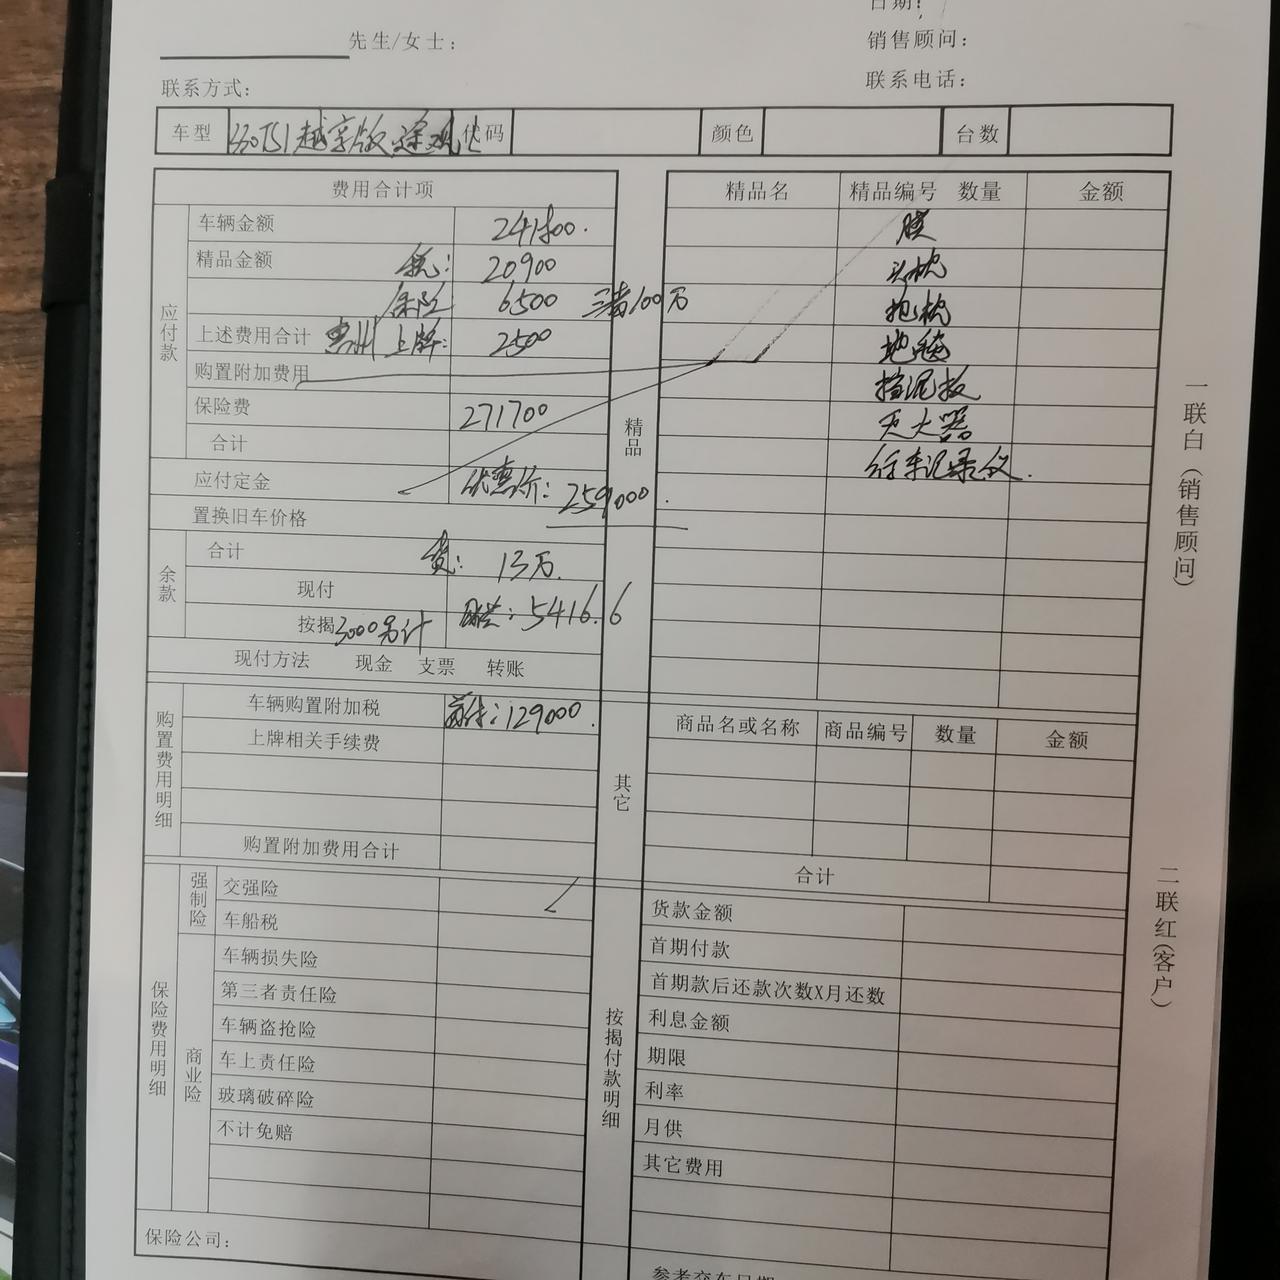 日期：
先生/女士： 销售顾问：
联系方式： 联系电话：
车型 330TSI 越享版 途观L 代码 颜色 台数
费用合计项 精品名 精品编号 数量 金额
应付款
车辆金额 241800. 膜
精品金额 税： 20900 头枕
保险 6500 三者100万 抱枕
上述费用合计 惠州 上牌： 2500 地毯
购置附加费用 挡泥板
保险费 271700 灭火器
合计 行车记录仪.
精品
应付定金 优惠价：259000.
置换旧车价格
余款
合计 贷： 13万.
现付
按揭 3000另计 月供：5416.6
现付方法 现金 支票 转账
购置费用明细
车辆购置附加税 首付：129000.
上牌相关手续费
购置附加费用合计
其它
商品名或名称 商品编号 数量 金额
合计
保险费用明细
强制险
交强险
车船税
商业险
车辆损失险
第三者责任险
车辆盗抢险
车上责任险
玻璃破碎险
不计免赔
按揭付款明细
货款金额
首期付款
首期款后还款次数X月还数
利息金额
期限
利率
月供
其它费用
保险公司：
参考交车日期
一联白（销售顾问）
二联红（客户）